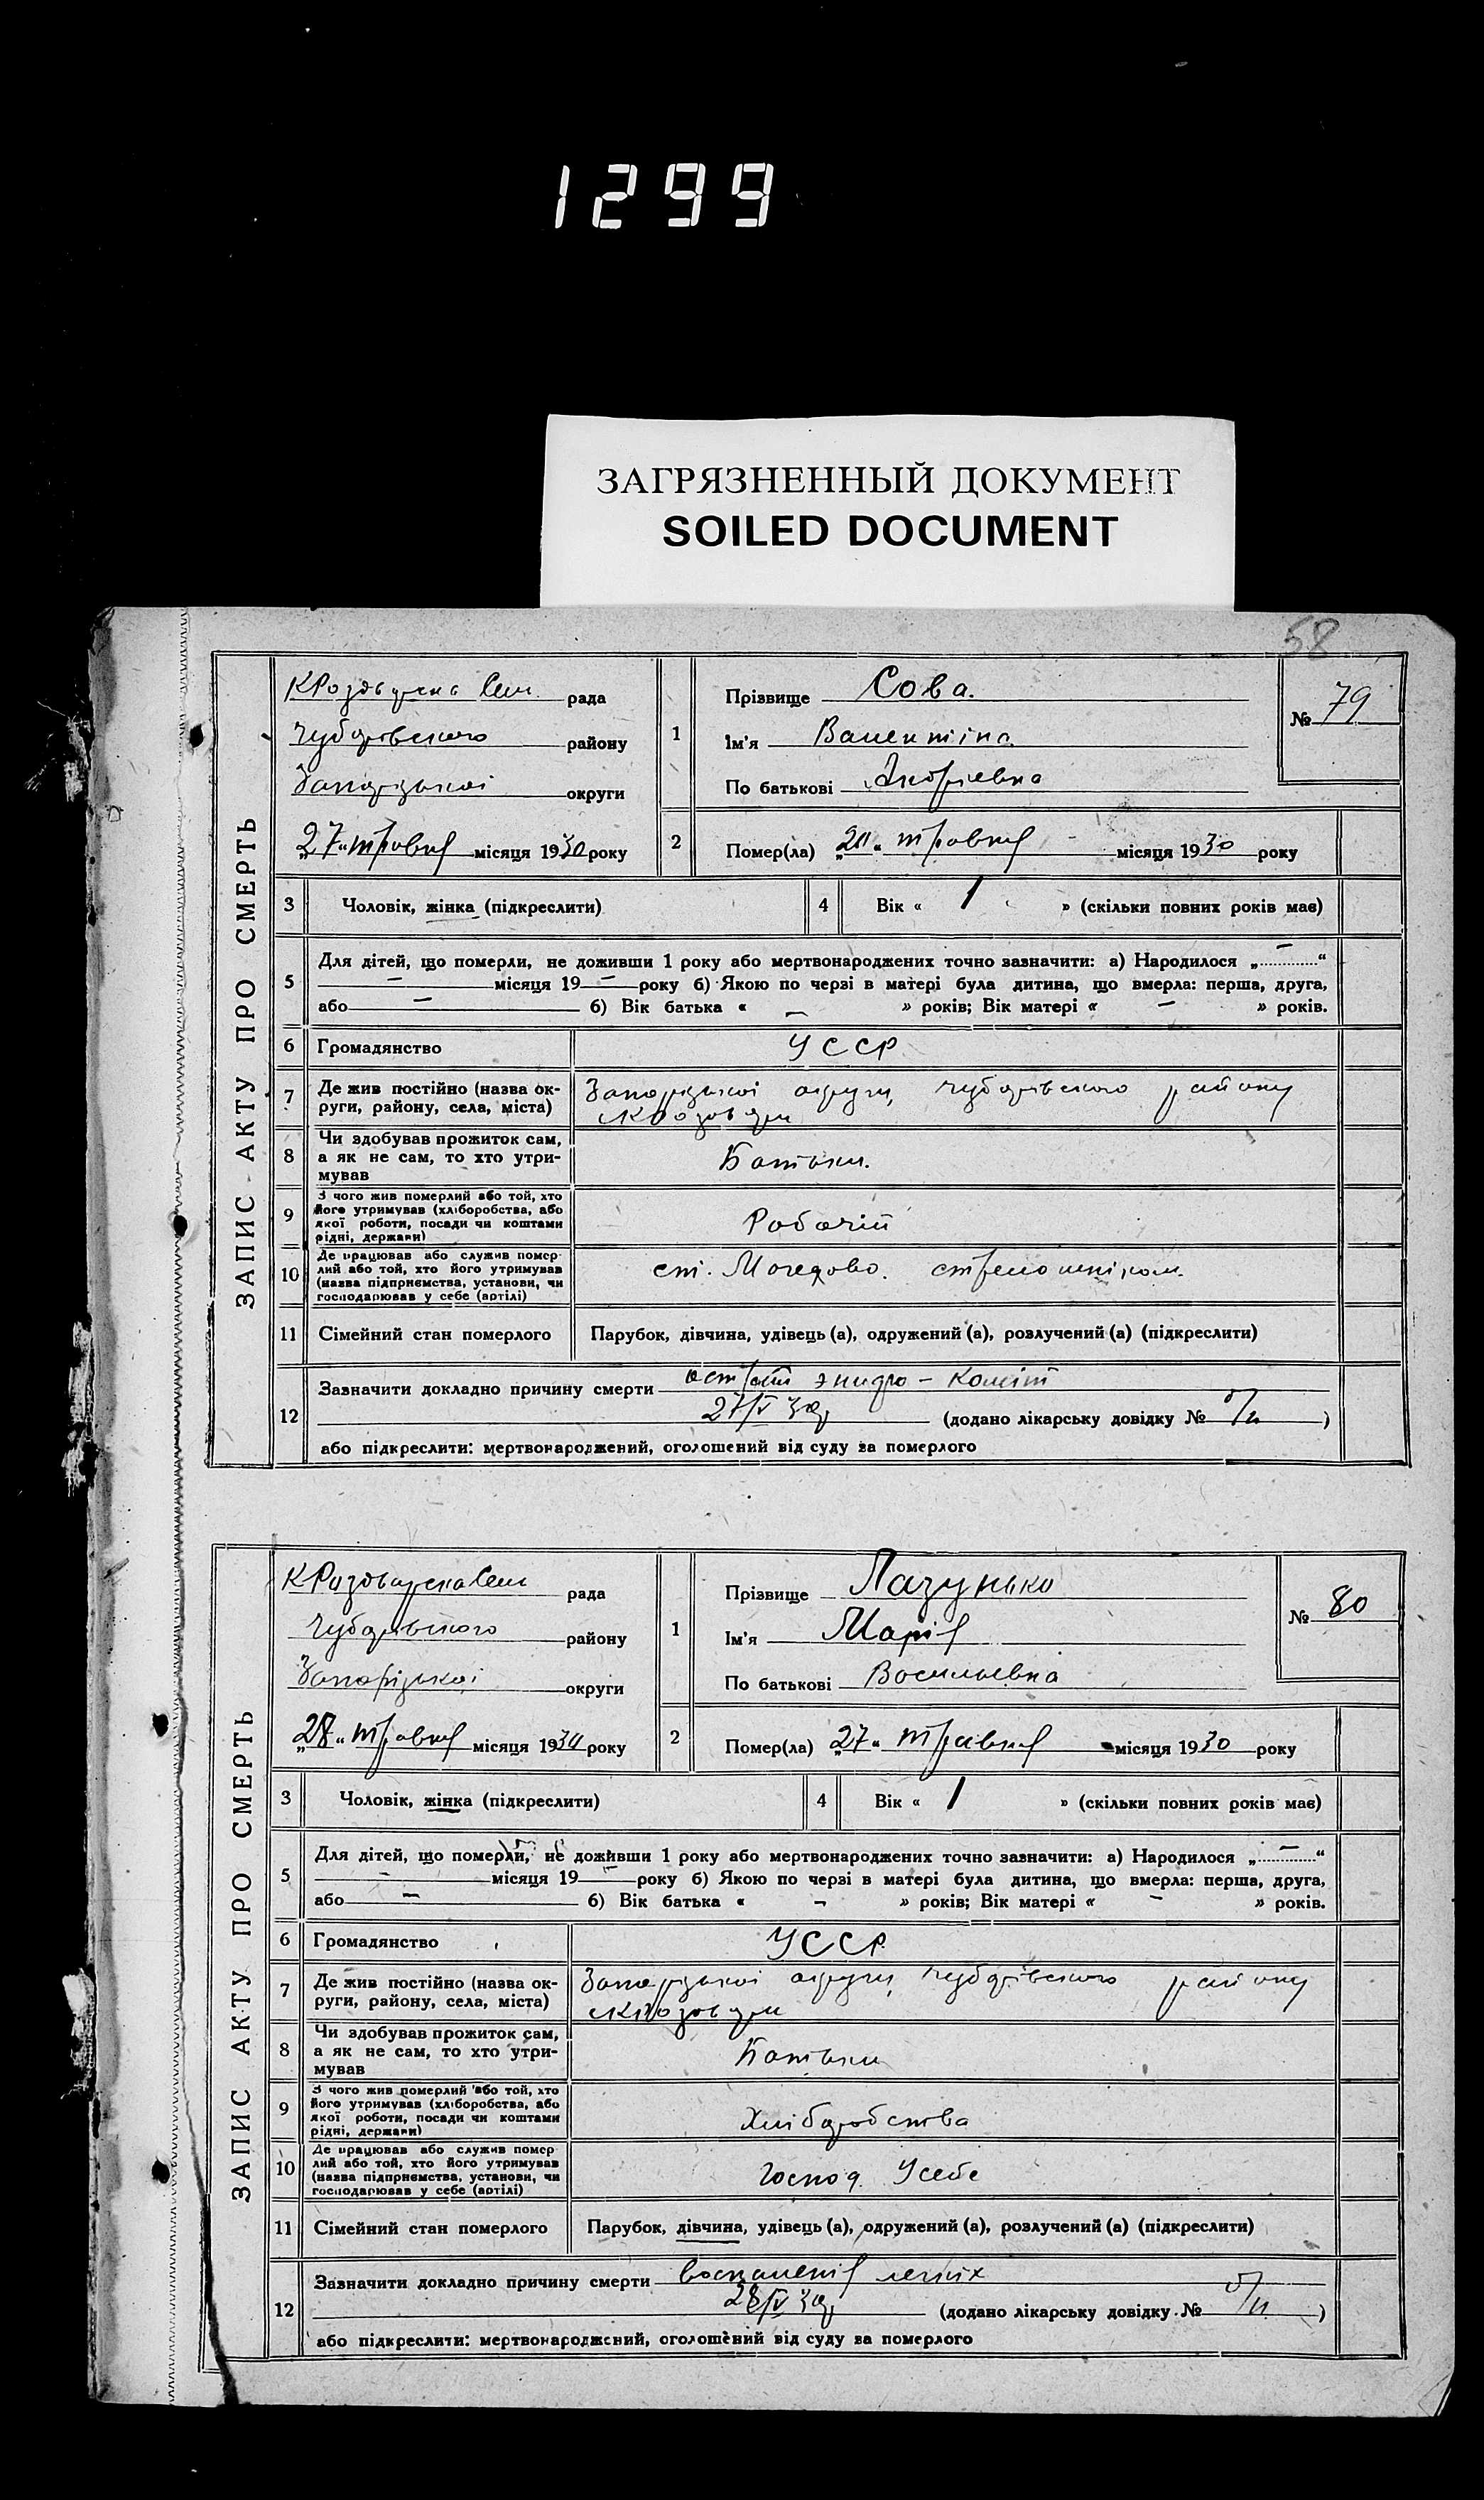 1299
ЗАГРЯЗНЕННЫЙ ДОКУМЕНТ
SOILED DOCUMENT
58
ЗАПИС АКТУ ПРО СМЕРТЬ
рада
Чубарівского району
Запорізькоі округи
„27“ травня місяця 1930 року
1
Прізвище Сова.
Ім'я Валентіна
По батькові
№ 79
2
Помер(ла) травня місяця 1930 року
3 Чоловік, жінка (підкреслити)
4 Вік « 1 » (скільки повних років має)
5
Для дітей, що померли, не доживши 1 року або мертвонароджених точно зазначити: а) Народилося „ – “
– місяця 19 – року б) Якою по черзі в матері була дитина, що вмерла: перша, друга,
або – б) Вік батька « – » років; Вік матері « – » років.
6 Громадянство УССР
7
Де жив постійно (назва ок-
руги, району, села, міста)
Запорізькоі округи, Чубарівского району
8
Чи здобував прожиток сам,
а як не сам, то хто утри-
мував
Батьки.
9
З чого жив померлий або той, хто
його утримував (хліборобства, або
якої роботи, посади чи коштами
рідні, держави)
Робочій
10
Де працював або служив помер-
лий або той, хто його утримував
(назва підприємства, установи, чи
господарював у себе (артілі)
ст.
11 Сімейний стан померлого Парубок, дівчина, удівець (а), одружений (а), розлучений (а) (підкреслити)
12
Зазначити докладно причину смерти
27/V 30р (додано лікарську довідку № )
або підкреслити: мертвонароджений, оголошений від суду за померлого
ЗАПИС АКТУ ПРО СМЕРТЬ
рада
Чубарівского району
Запорізькоі округи
„28“ травня місяця 1930 року
1
Прізвище Лазунько
Ім'я Марія
По батькові Васильевна
№ 80
2
Помер(ла) „27“ травня місяця 1930 року
3 Чоловік, жінка (підкреслити)
4 Вік « 1 » (скільки повних років має)
5
Для дітей, що померли, не доживши 1 року або мертвонароджених точно зазначити: а) Народилося „ – “
– місяця 19 – року б) Якою по черзі в матері була дитина, що вмерла: перша, друга,
або – б) Вік батька « – » років; Вік матері « – » років.
6 Громадянство УССР
7
Де жив постійно (назва ок-
руги, району, села, міста)
Запорізькоі округи, Чубарівского району
8
Чи здобував прожиток сам,
а як не сам, то хто утри-
мував
Батьки
9
З чого жив померлий або той, хто
його утримував (хліборобства, або
якої роботи, посади чи коштами
рідні, держави)
Хліборобства
10
Де працював або служив помер-
лий або той, хто його утримував
(назва підприємства, установи, чи
господарював у себе (артілі)
Господ. Усебе
11 Сімейний стан померлого Парубок, дівчина, удівець (а), одружений (а), розлучений (а) (підкреслити)
12
Зазначити докладно причину смерти воспаленія легкіх
28/V 30р (додано лікарську довідку № )
або підкреслити: мертвонароджений, оголошений від суду за померлого